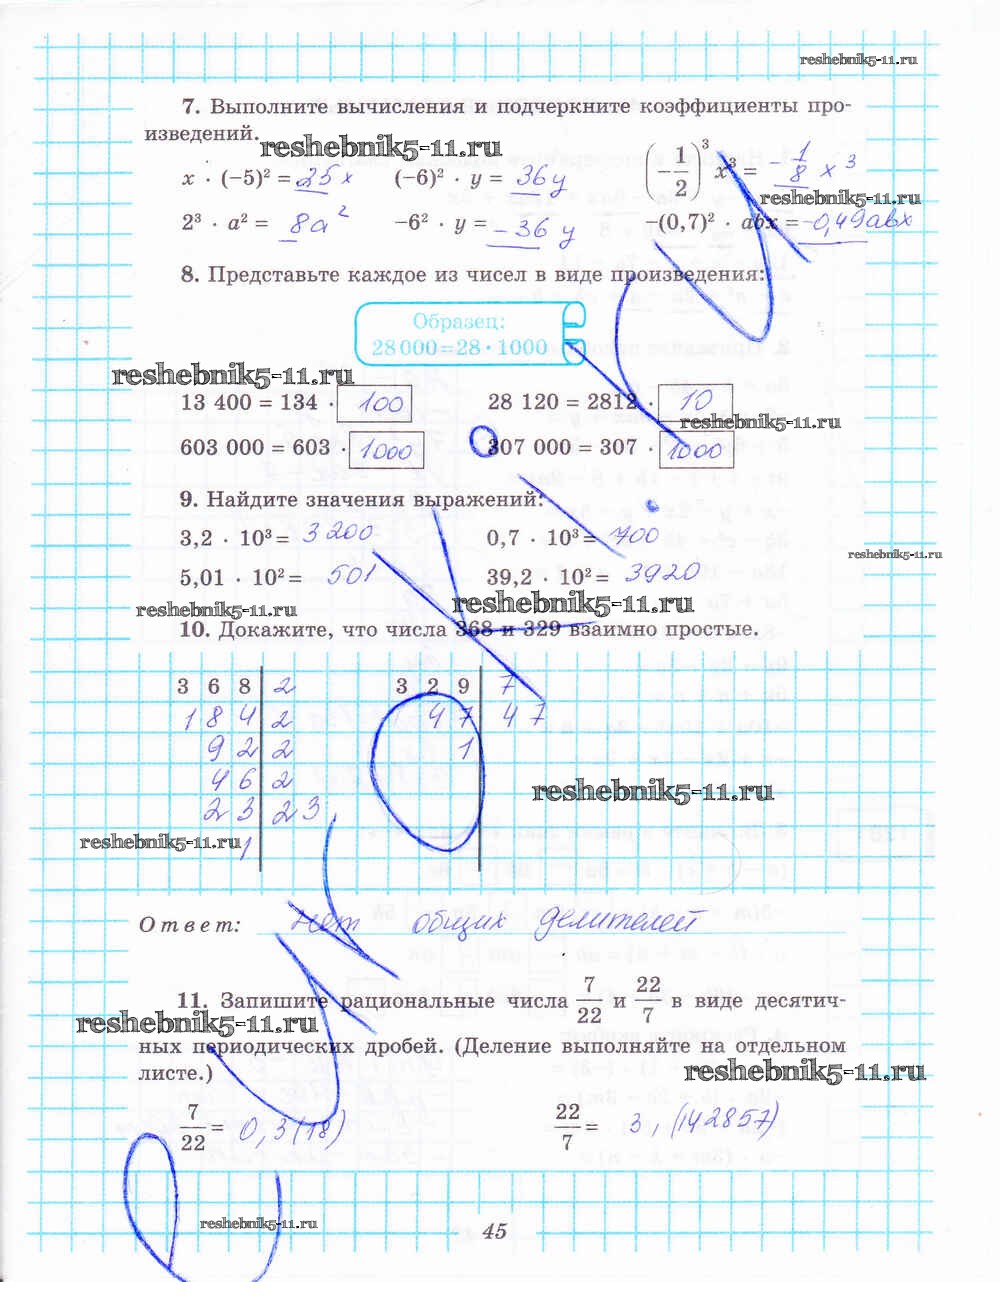 reshebnik5-11.ru
7. Выполните вычисления и подчеркните коэффициенты про-
изведений.
reshebnik5-11.ru
x · (−5)² = 25x (−6)² · y = 36y (−1/2)³ x³ = −1/8 x³
reshebnik5-11.ru
2³ · a² = 8a² −6² · y = −36y −(0,7)² · abx = −0,49abx
8. Представьте каждое из чисел в виде произведения:
Образец:
28 000 = 28 · 1000
reshebnik5-11.ru
13 400 = 134 · 100 28 120 = 2812 · 10
reshebnik5-11.ru
603 000 = 603 · 1000 307 000 = 307 · 1000
9. Найдите значения выражений:
3,2 · 10³ = 3200 0,7 · 10³ = 700
reshebnik5-11.ru
5,01 · 10² = 501 39,2 · 10² = 3920
reshebnik5-11.ru reshebnik5-11.ru
10. Докажите, что числа 368 и 329 взаимно простые.
368 2 329 7
184 2 47 47
92 2 1
46 2
reshebnik5-11.ru
23 23
reshebnik5-11.ru 1
Ответ: нет общих делителей
11. Запишите рациональные числа 7/22 и 22/7 в виде десятич-
reshebnik5-11.ru
ных периодических дробей. (Деление выполняйте на отдельном
листе.)
reshebnik5-11.ru
7/22 = 0,3(18) 22/7 = 3,(142857)
reshebnik5-11.ru
45